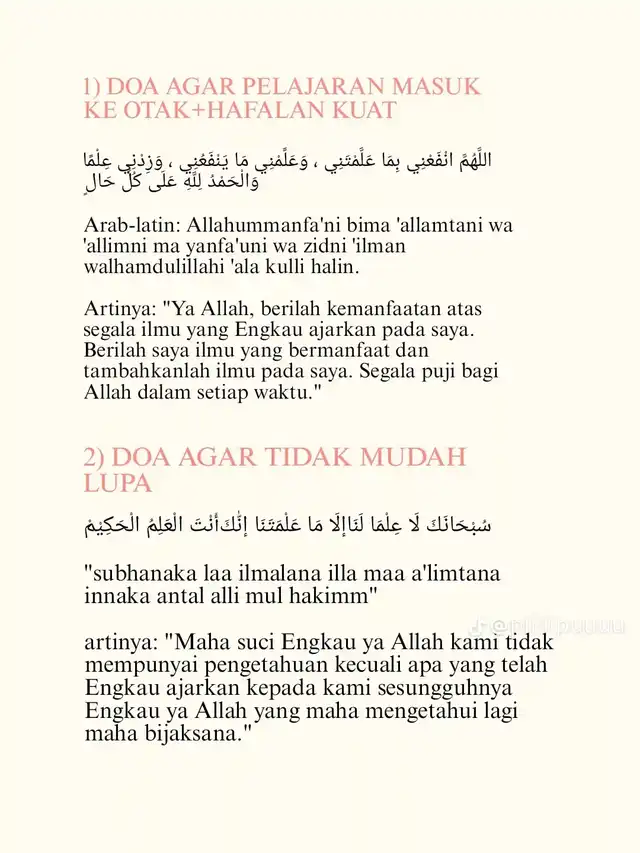 1) DOA AGAR PELAJARAN MASUK
KE OTAK+HAFALAN KUAT
اللَّهُمَّ انْفَعْنِي بِمَا عَلَّمْتَنِي ، وَعَلِّمْنِي مَا يَنْفَعُنِي ، وَزِدْنِي عِلْمًا
وَالْحَمْدُ لِلَّهِ عَلَى كُلِّ حَالٍ
Arab-latin: Allahummanfa'ni bima 'allamtani wa
'allimni ma yanfa'uni wa zidni 'ilman
walhamdulillahi 'ala kulli halin.
Artinya: "Ya Allah, berilah kemanfaatan atas
segala ilmu yang Engkau ajarkan pada saya.
Berilah saya ilmu yang bermanfaat dan
tambahkanlah ilmu pada saya. Segala puji bagi
Allah dalam setiap waktu."
2) DOA AGAR TIDAK MUDAH
LUPA
سُبْحَانَكَ لَا عِلْمَا لَنَاإلَّا مَا عَلْمَتَنَا إنَّكَ أَنْتَ الْعَلِمُ الْحَكِيْمْ
"subhanaka laa ilmalana illa maa a'limtana
innaka antal alli mul hakimm"
artinya: "Maha suci Engkau ya Allah kami tidak
mempunyai pengetahuan kecuali apa yang telah
Engkau ajarkan kepada kami sesungguhnya
Engkau ya Allah yang maha mengetahui lagi
maha bijaksana."